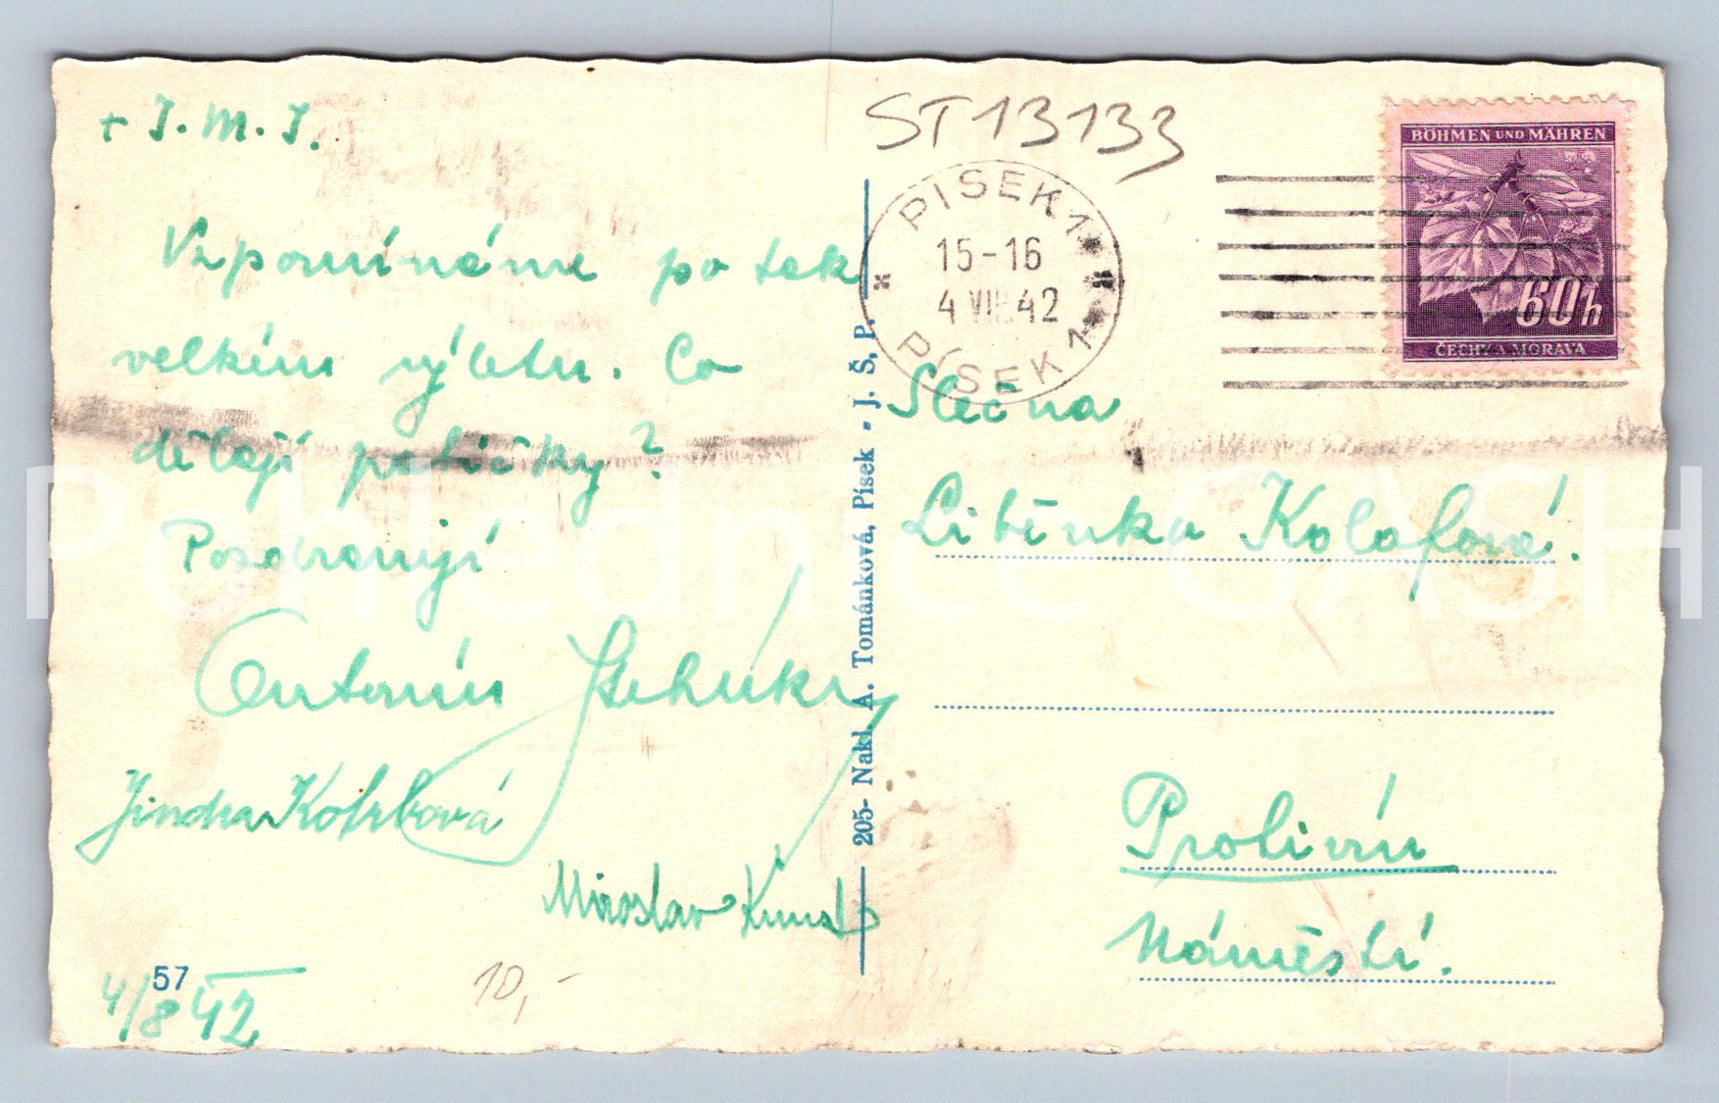 + J. M. J.
Vzpomínáme po tak
velkém výletu. Co
dělají patičky?
Pozdravují
Antonín
Jindra Kotrbová
Miroslav Kunst
4/8 42
57
10,-
205- Nakl. A. Tománková, Písek - J. Š. P.
ST13133
PÍSEK 1
15-16
4 VIII 42
PÍSEK 1
BÖHMEN UND MÄHREN
60h
ČECHY A MORAVA
Slečna
Liběnka Kolafová.
Protivín
Náměstí.
Pohlednice GASH